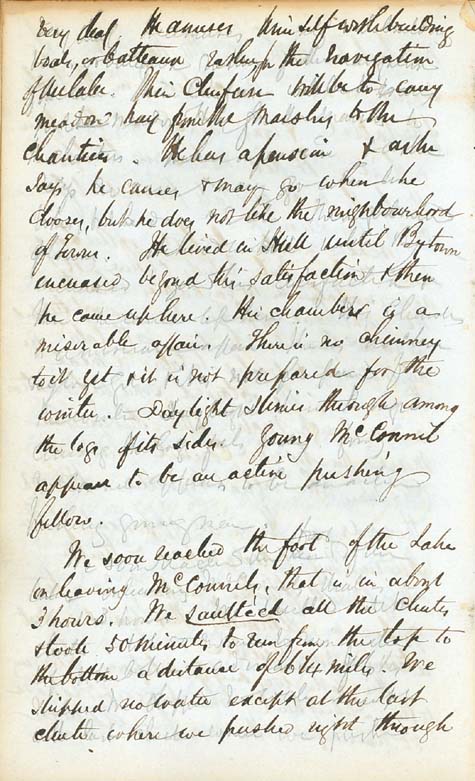 very deal. He amuses himself with building
boats, or batteaux to keep the navigation
of the lake. Their chief use will be to carry
meadow hay from the marshes to the
Chantiers. He has a pension & as he
says he came & may go when he
chooses, but he does not like the neighbourhood
of Towns. He lived in Hull until Bytown
increased beyond his satisfaction & then
he came up here. His chambers is a
miserable affair. There is no chimney
to it yet & it is not prepared for the
winter. Daylight shines through among
the logs of its sides. Young McConnel
appears to be an active pushing
fellow.
We soon reached the foot of the Lake
on leaving McConnels, that is in about
3 hours. We saulted all the chutes
& took 50 minutes to run from the top to
the bottom a distance of 6¼ miles. We
shipped no water except at the last
chute where we pushed right through